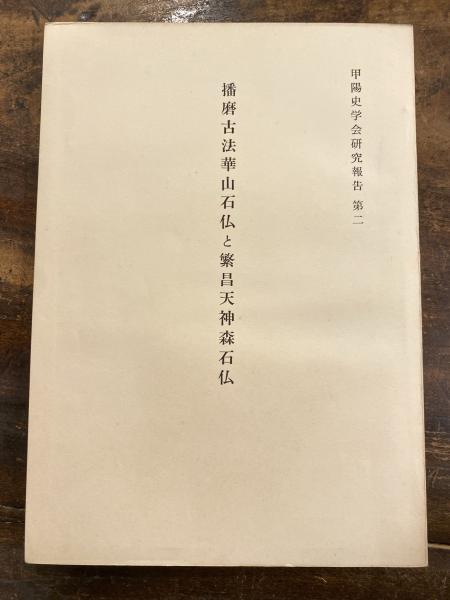 甲陽史学会研究報告 第二
播磨古法華山石仏と繁昌天神森石仏